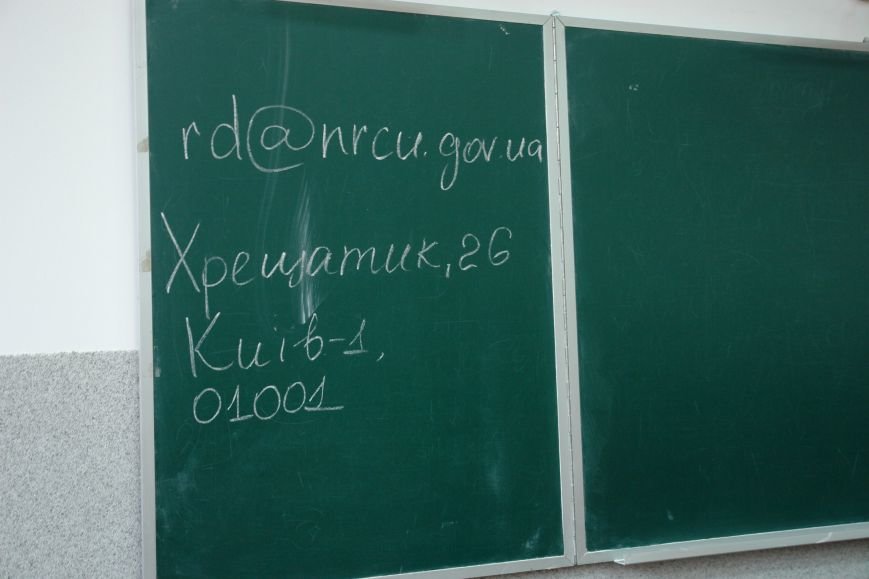 rd@nrcu.gov.ua
Хрещатик, 26
Київ-1,
01001